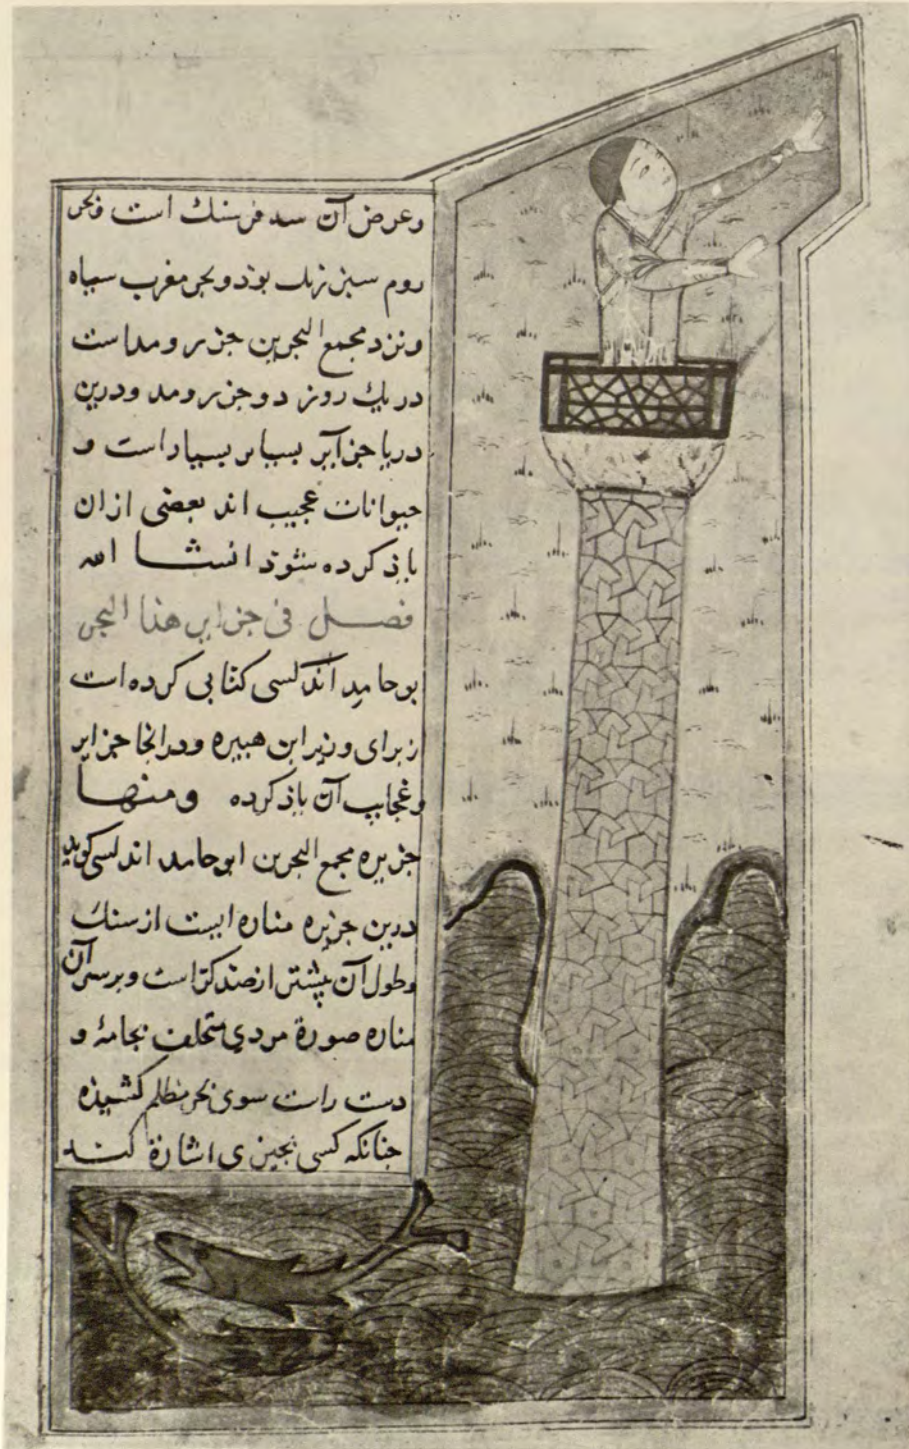 وعرض آن سد فرسنك است وبحر
روم سبز زنك بوذ وبحر مغرب سياه
ونزد مجمع البحرين جزر ومد است
در يك روز دو جزر ومد ودرين
دريا جزاير بسيار بسيار است و
حيوانات عجيب اند بعضى ازان
ياذ كرده شوذ انشا الله
فصل فى جزاير هذا البحر
بوحامد اندلسى كتابى كرده است
زبراى وزير ابن هبيره ودرانجا جزاير
وعجايب آن ياذ كرده ومنها
جزيره مجمع البحرين ابوحامد اندلسى كويد
درين جزيره مناره ايست از سنك
وطول آن بيشتر از صد كز است وبر سر آن
مناره صورة مردى ملتحف بجامهٔ و
دست راست سوى بحر مظلم كشيذه
جنانكه كسى بجيزى اشارة كند